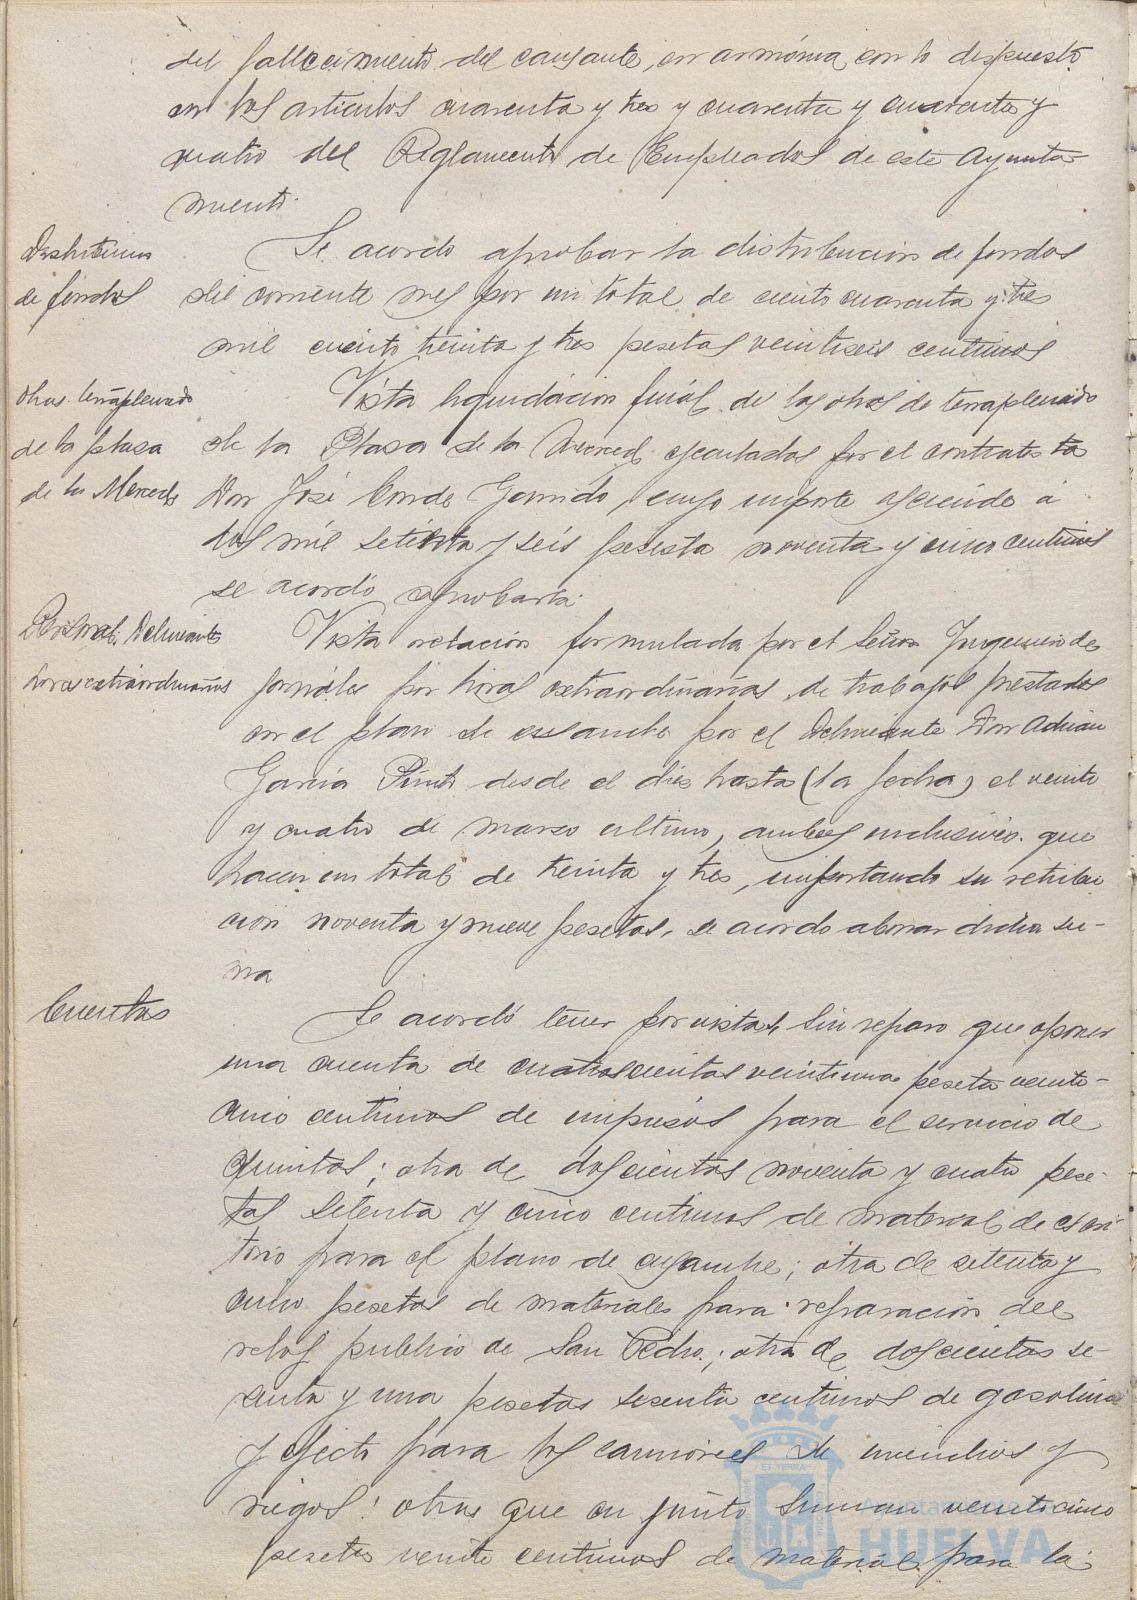 del fallecimiento del causante, en armónia con lo dispuesto
en los articulos cuarenta y tres y cuarenta y cuarenta y
cuatro del Reglamento de Empleados de este Ayunta-
miento.
Distribucion
de fondos
Se acordo aprobar la distribucion de fondos
del corriente mes por un total de ciento cuarenta y tres
mil ciento treinta y tres pesetas veintiseis centimos
obras terraplenado
de la plasa
de la Merced
Vista liquidación finál de las obras de terraplenado
de la Plasa de la Merced ejecutadas por el contratista
Don José Conde Garrido, cuyo importe asciende á
dos mil setenta y seis peseta noventa y cinco centimos
se acordó aprobarla.
Personal. Delineante
horas extraordinarias
Vista relación formulada por el Señor Ingeniero de
jornáles por horas extraordinarias de trabajos prestados
en el plan de ensanche por el Delineante Don Adrian
Garcia Pinto desde el dies hasta (la fecha) el veinte
y cuatro de marzo ultimo, ambos inclusives. que
hacen un total de treinta y tres, importando su retribu
ción noventa y nueve pesetas, se acordo abonar dicha su-
ma
Cuentas
Se acordó tener por vistas, sin reparo que oponer
una cuenta de cuatrocientas veintiuna peseta veinte-
cinco centimos de impresos para el servicio de
Quintas; otra de doscientas noventa y cuatro pese-
tas setenta y cinco centimos de material de escri
torio para el plano de ensanche; otra de setenta y
cinco pesetas de materiáles para reparación del
reloj publico de San Pedro.; otra de doscientas se-
senta y una pesetas sesenta centimos de gasolina
y efecto para los camiones de incendios y
riegos: otras que en junto suman veinticinco
pesetas veinte centimos de material para la
Ayuntamiento de
HUELVA